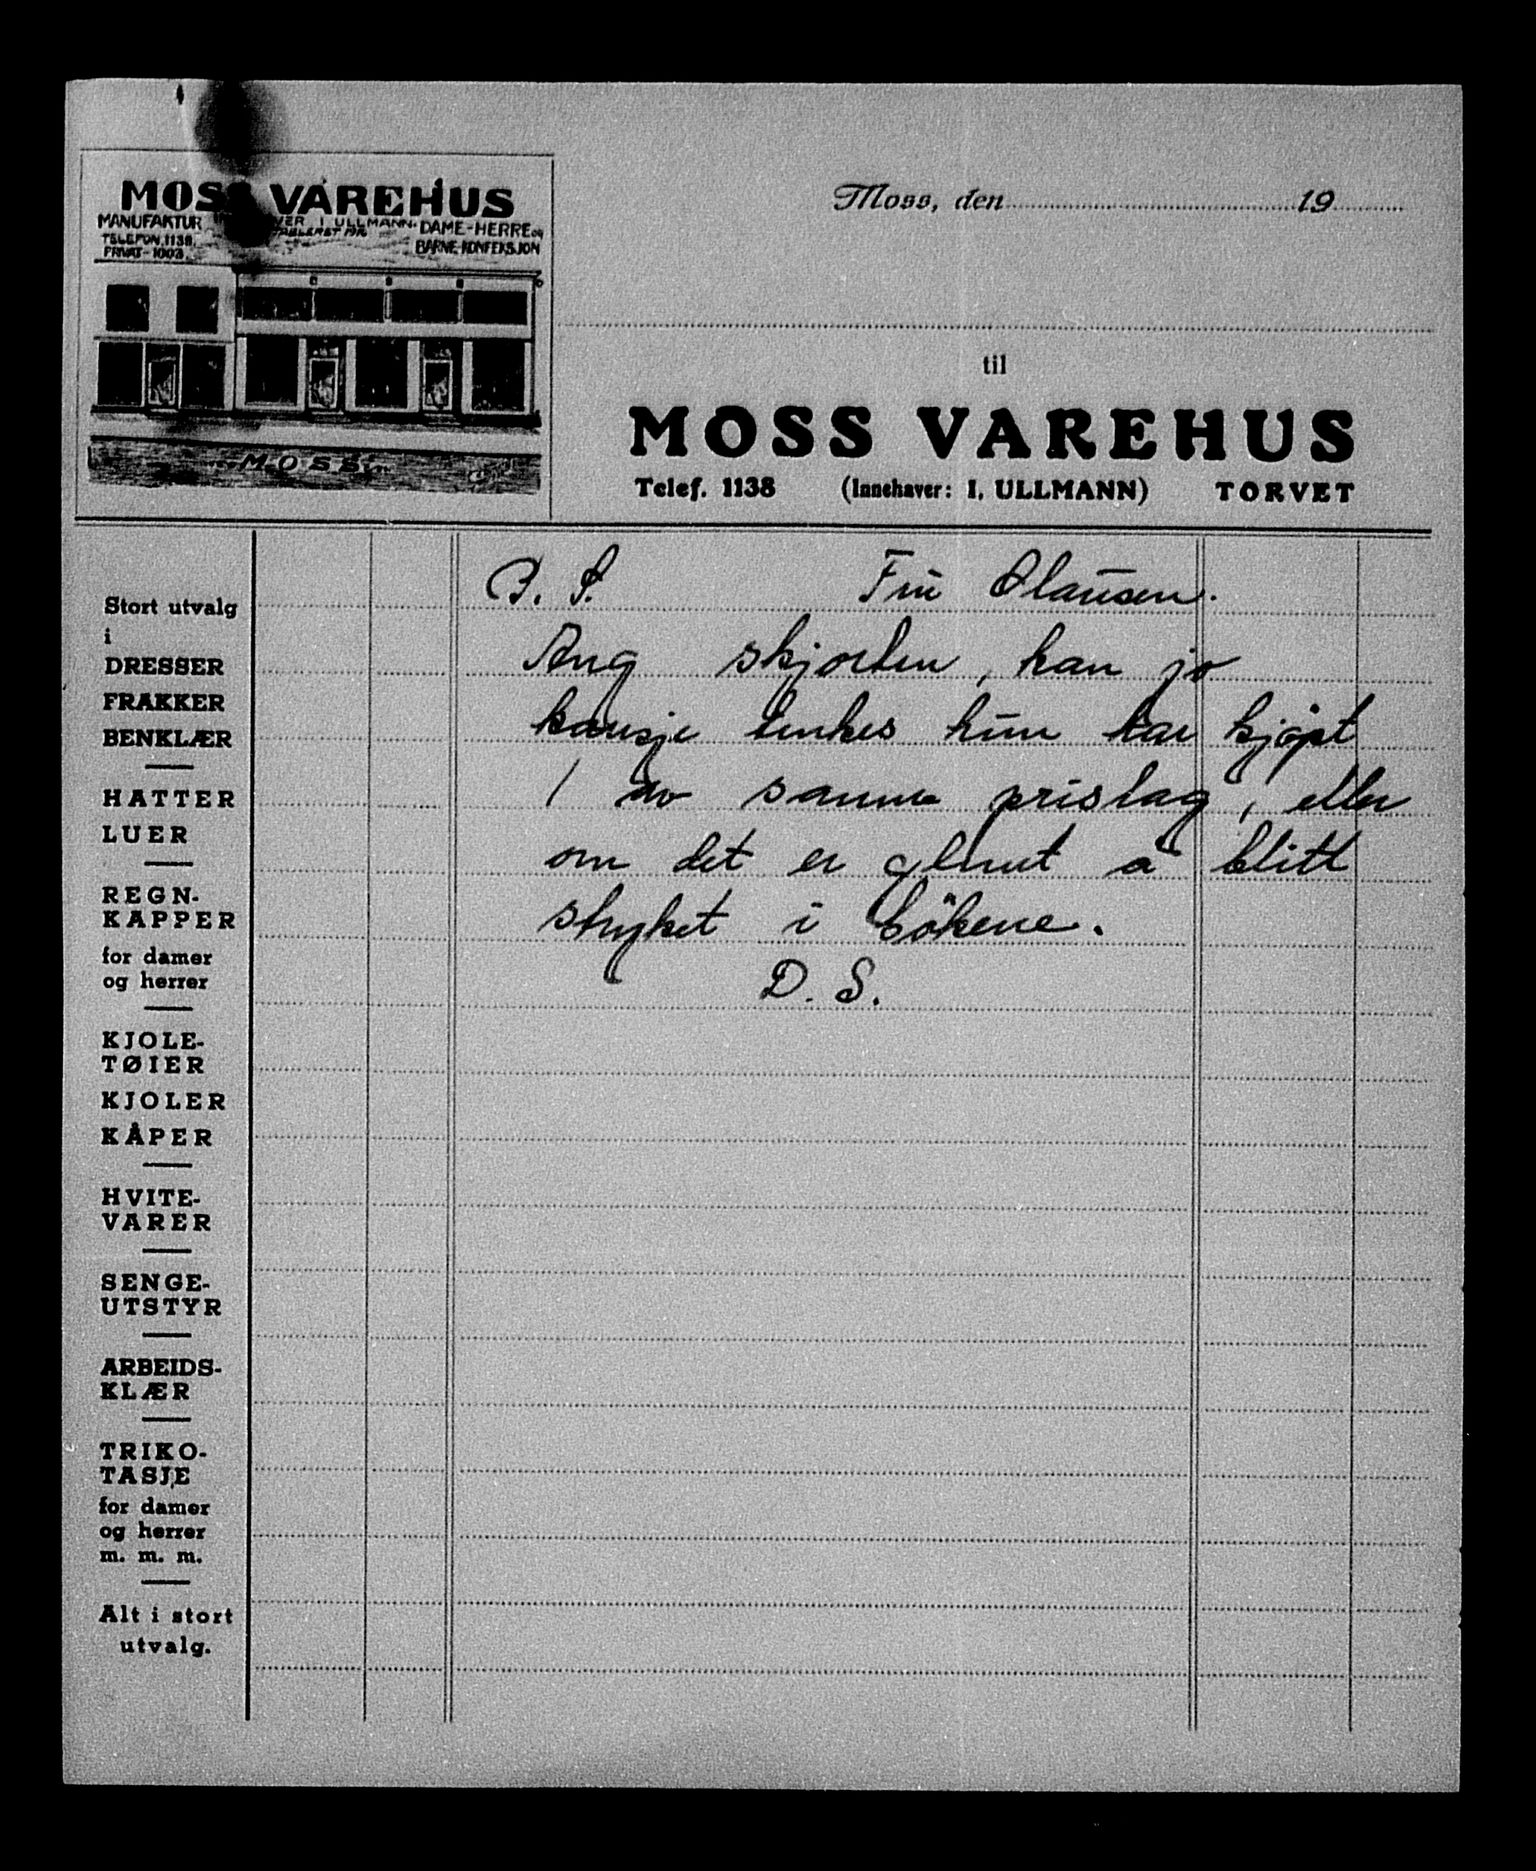 MOSS VAREHUS
MANUFAKTUR I. ULLMANN. DAME-HERRE og
TELEFON 1138. ETABLERET 1916 BARNE-KONFEKSJON
PRIVAT-1003.
MOSS
Moss, den 19
til
MOSS VAREHUS
Telef. 1138 (Innehaver: I. ULLMANN) TORVET
Stort utvalg
i
DRESSER
FRAKKER
BENKLÆR
HATTER
LUER
REGN-
KAPPER
for damer
og herrer
KJOLE-
TØIER
KJOLER
KÅPER
HVITE-
VARER
SENGE-
UTSTYR
ARBEIDS-
KLÆR
TRIKO-
TASJE
for damer
og herrer
m. m. m.
Alt i stort
utvalg.
Fru Olausen.
Ang skjorten, kan jo
kansje tenkes hun har kjøpt
1 av samme prislag, eller
om det er glemt a blitt
stryket i bökene.
D. S.